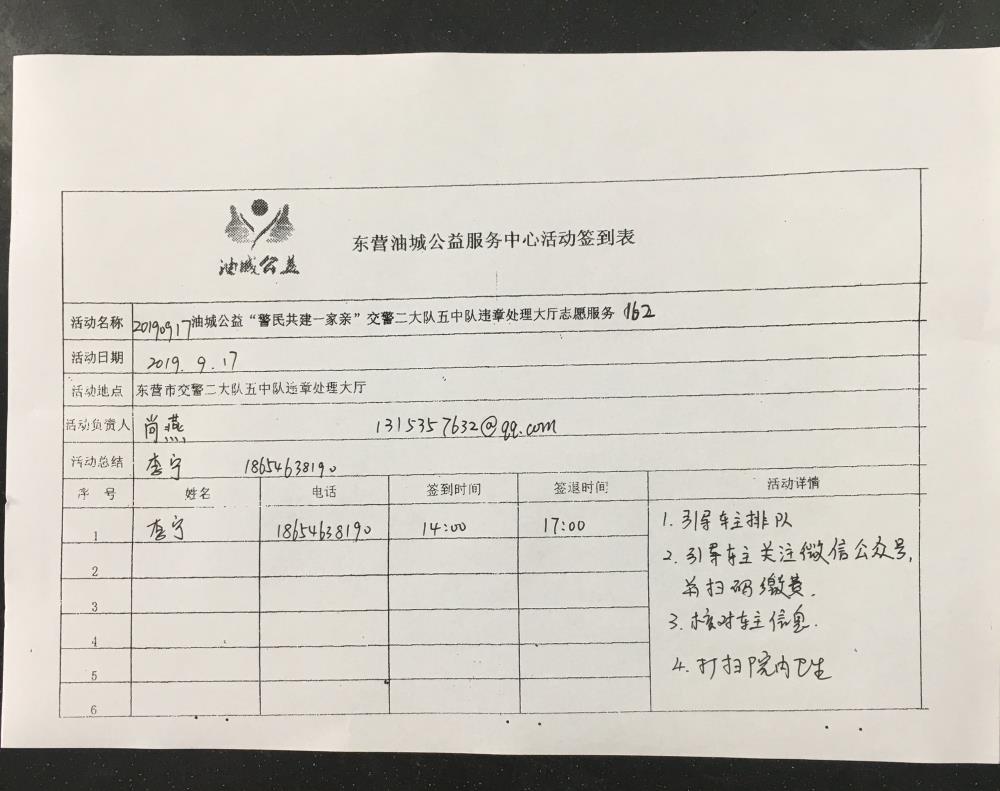 油城公益
东营油城公益服务中心活动签到表
活动名称 20190917油城公益“警民共建一家亲”交警二大队五中队违章处理大厅志愿服务 162
活动日期 2019.9.17
活动地点 东营市交警二大队五中队违章处理大厅
活动负责人 尚燕 1315357632@qq.com
活动总结 李宁 18654638190
序号 姓名 电话 签到时间 签退时间 活动详情
1 李宁 18654638190 14:00 17:00
2
3
4
5
6
1.引导车主排队
2.引导车主关注微信公众号,
并扫码缴费.
3.核对车主信息.
4.打扫院内卫生